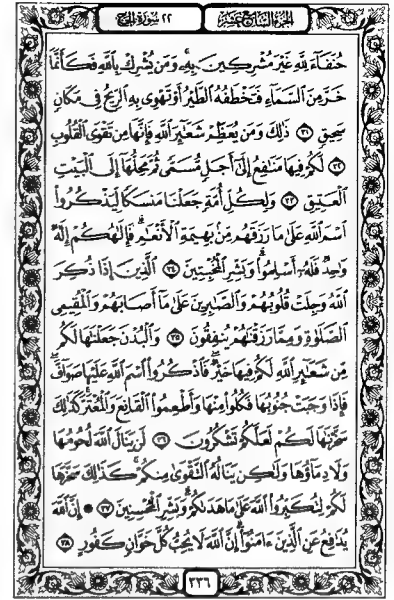 الجزء السابع عشر
٢٢ سورة الحج
حُنَفَآءَ لِلَّهِ غَيْرَ مُشْرِكِينَ بِهِۦۚ وَمَن يُشْرِكْ بِٱللَّهِ فَكَأَنَّمَا
خَرَّ مِنَ ٱلسَّمَآءِ فَتَخْطَفُهُ ٱلطَّيْرُ أَوْ تَهْوِى بِهِ ٱلرِّيحُ فِى مَكَانٍ
سَحِيقٍ ٣١ ذَٰلِكَ وَمَن يُعَظِّمْ شَعَٰٓئِرَ ٱللَّهِ فَإِنَّهَا مِن تَقْوَى ٱلْقُلُوبِ
٣٢ لَكُمْ فِيهَا مَنَٰفِعُ إِلَىٰٓ أَجَلٍ مُّسَمًّى ثُمَّ مَحِلُّهَآ إِلَى ٱلْبَيْتِ
ٱلْعَتِيقِ ٣٣ وَلِكُلِّ أُمَّةٍ جَعَلْنَا مَنسَكًا لِّيَذْكُرُوا۟
ٱسْمَ ٱللَّهِ عَلَىٰ مَا رَزَقَهُم مِّنۢ بَهِيمَةِ ٱلْأَنْعَٰمِۗ فَإِلَٰهُكُمْ إِلَٰهٌ
وَٰحِدٌ فَلَهُۥٓ أَسْلِمُوا۟ۗ وَبَشِّرِ ٱلْمُخْبِتِينَ ٣٤ ٱلَّذِينَ إِذَا ذُكِرَ
ٱللَّهُ وَجِلَتْ قُلُوبُهُمْ وَٱلصَّٰبِرِينَ عَلَىٰ مَآ أَصَابَهُمْ وَٱلْمُقِيمِى
ٱلصَّلَوٰةِ وَمِمَّا رَزَقْنَٰهُمْ يُنفِقُونَ ٣٥ وَٱلْبُدْنَ جَعَلْنَٰهَا لَكُم
مِّن شَعَٰٓئِرِ ٱللَّهِ لَكُمْ فِيهَا خَيْرٌۖ فَٱذْكُرُوا۟ ٱسْمَ ٱللَّهِ عَلَيْهَا صَوَآفَّۖ
فَإِذَا وَجَبَتْ جُنُوبُهَا فَكُلُوا۟ مِنْهَا وَأَطْعِمُوا۟ ٱلْقَانِعَ وَٱلْمُعْتَرَّۚ كَذَٰلِكَ
سَخَّرْنَٰهَا لَكُمْ لَعَلَّكُمْ تَشْكُرُونَ ٣٦ لَن يَنَالَ ٱللَّهَ لُحُومُهَا
وَلَا دِمَآؤُهَا وَلَٰكِن يَنَالُهُ ٱلتَّقْوَىٰ مِنكُمْۚ كَذَٰلِكَ سَخَّرَهَا
لَكُمْ لِتُكَبِّرُوا۟ ٱللَّهَ عَلَىٰ مَا هَدَىٰكُمْۗ وَبَشِّرِ ٱلْمُحْسِنِينَ ٣٧ ۞ إِنَّ ٱللَّهَ
يُدَٰفِعُ عَنِ ٱلَّذِينَ ءَامَنُوٓا۟ۗ إِنَّ ٱللَّهَ لَا يُحِبُّ كُلَّ خَوَّانٍ كَفُورٍ ٣٨
٣٣٦